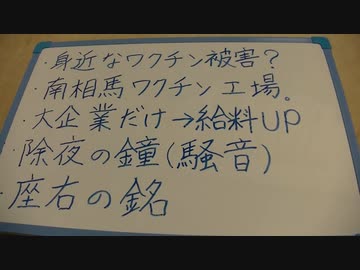 ・身近なワクチン被害？
・南相馬ワクチン工場。
・大企業だけ→給料UP
・除夜の鐘(騒音)
・座右の銘